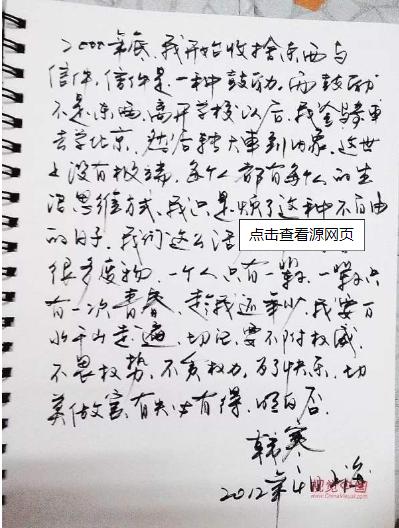 2000年底,我开始收拾东西与
信件,信件是一种鼓励,而鼓励
不是东西,离开学校以后,我会骑车
去学北京,然后转火车到内蒙,这世
上没有极端,每个人都有每个人的生
活思维方式,我只是烦了这种不自由
的日子,我们这么活
点击查看源网页
很多废物,一个人只有一辈,一辈只
有一次青春,趁我还年少,我要万
水千山走遍,切记,要不附权威,
不畏权势,不贪权力,为了快乐,切
莫做官,有失必有得,明白否
韩寒
2012年 上海
视觉中国
ChinaVisual.com